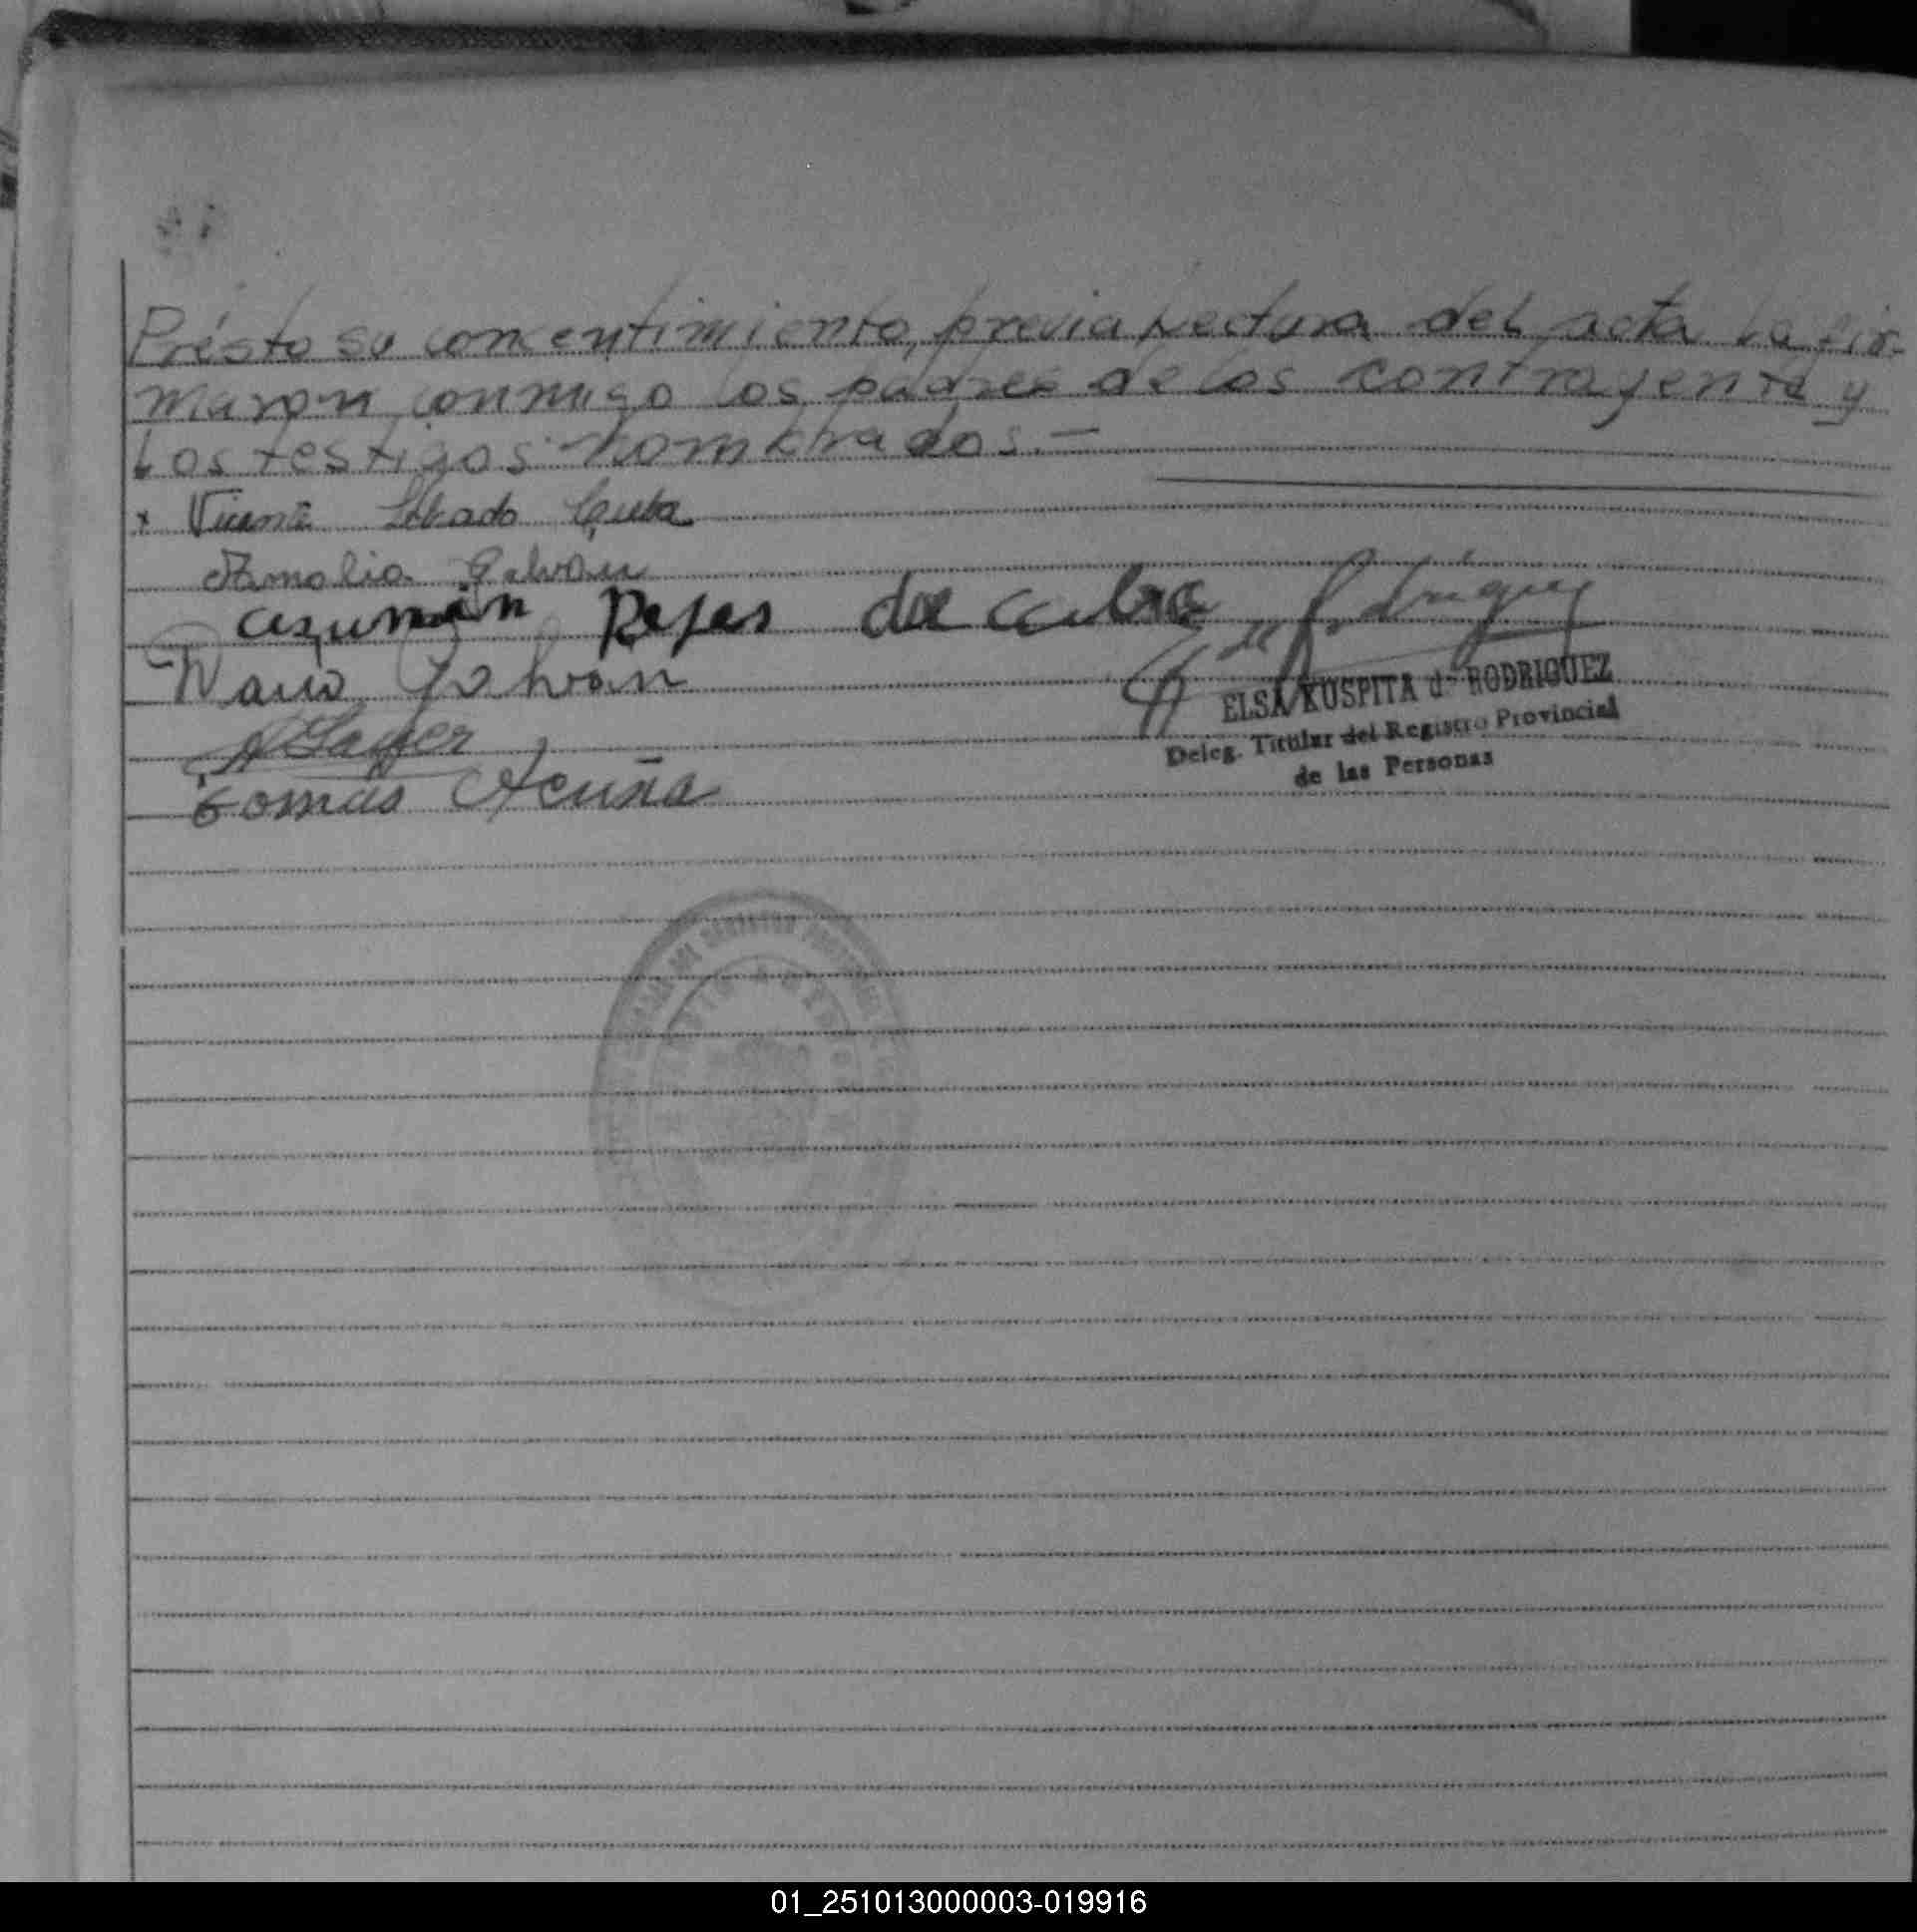 Présto su concentimiento, previa Lectura del acta La fir-
maron conmigo los padres de los contrayente y
Los testigos nombrados.—
x Vicente Librado Cuba
Amalia Galván
asunsión Rejas de Cuba
Dario Galvan
Tomás Acuña
Rodriguez
ELSA KUSPITA de RODRIGUEZ
Deleg. Titular del Registro Provincial
de las Personas
01_251013000003-019916